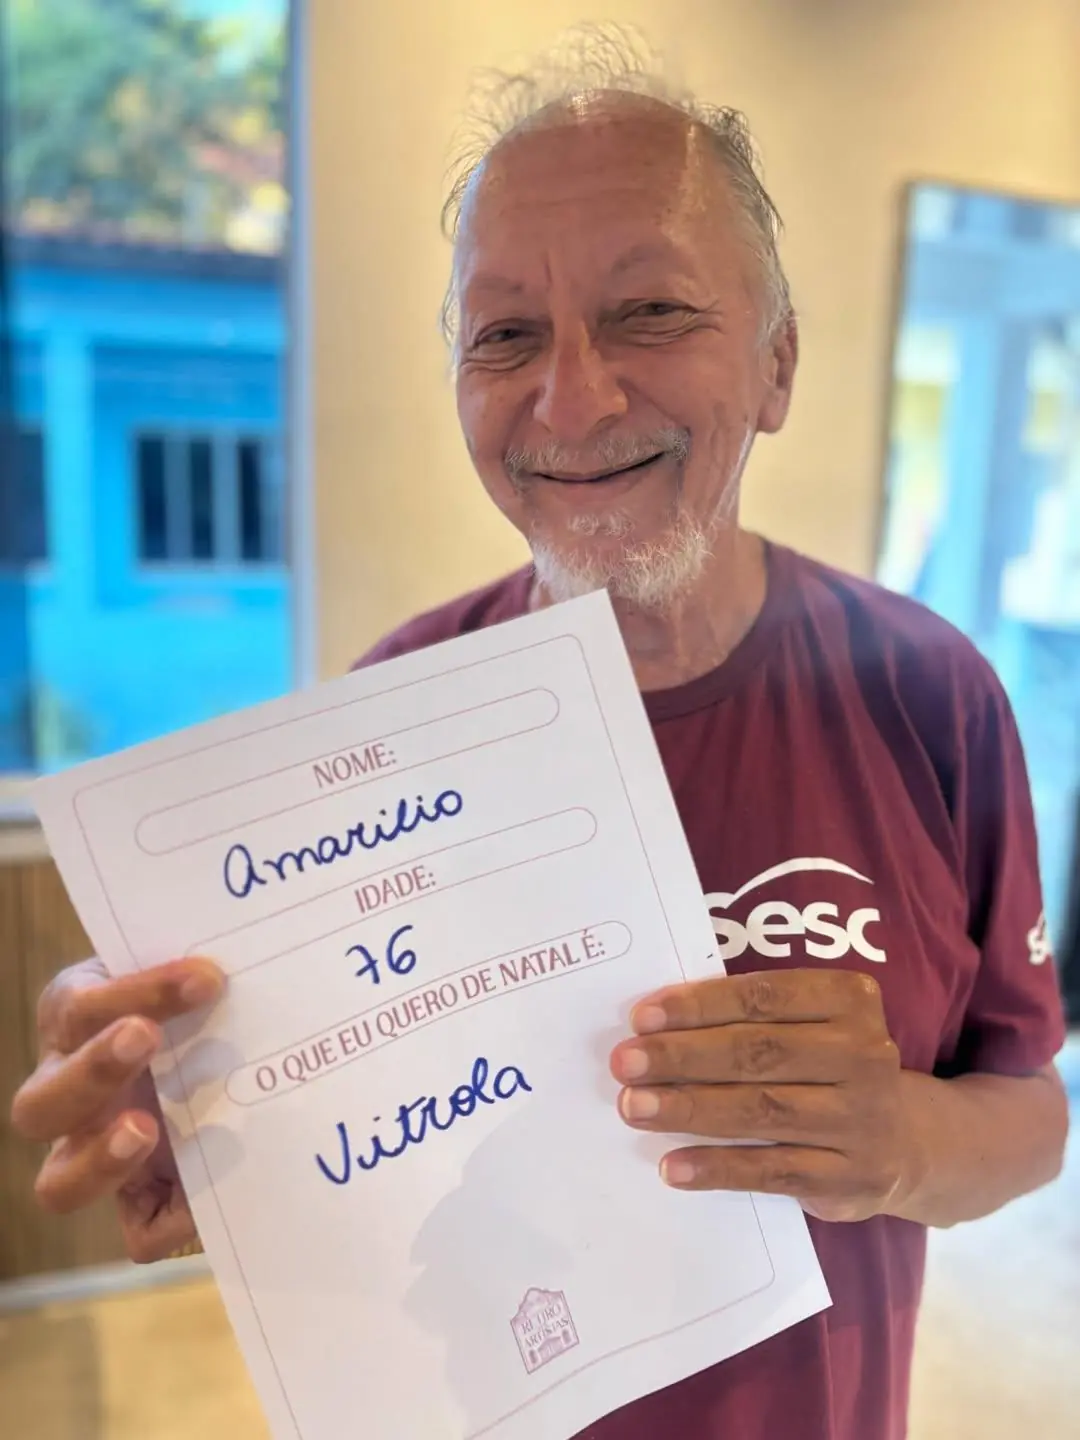 NOME:
Amarilio
IDADE:
76
O QUE EU QUERO DE NATAL É:
Vitrola
RETIRO
ARTISTAS
sesc